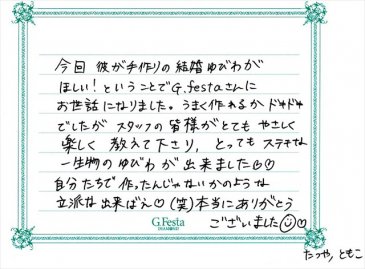 今回 彼が手作りの結婚ゆびわが
ほしい！ということでG.festaさんに
お世話になりました。うまく作れるかドキドキ
でしたが スタッフの皆様がとても やさしく
楽しく 教えて下さり、とっても ステキな
一生物のゆびわが 出来ました♡♡
自分たちで 作ったんじゃないかのような
立派な 出来ばえ♡ (笑)本当にありがとう
ございました☺♡
G.Festa
DIAMOND
たつや, ともこ